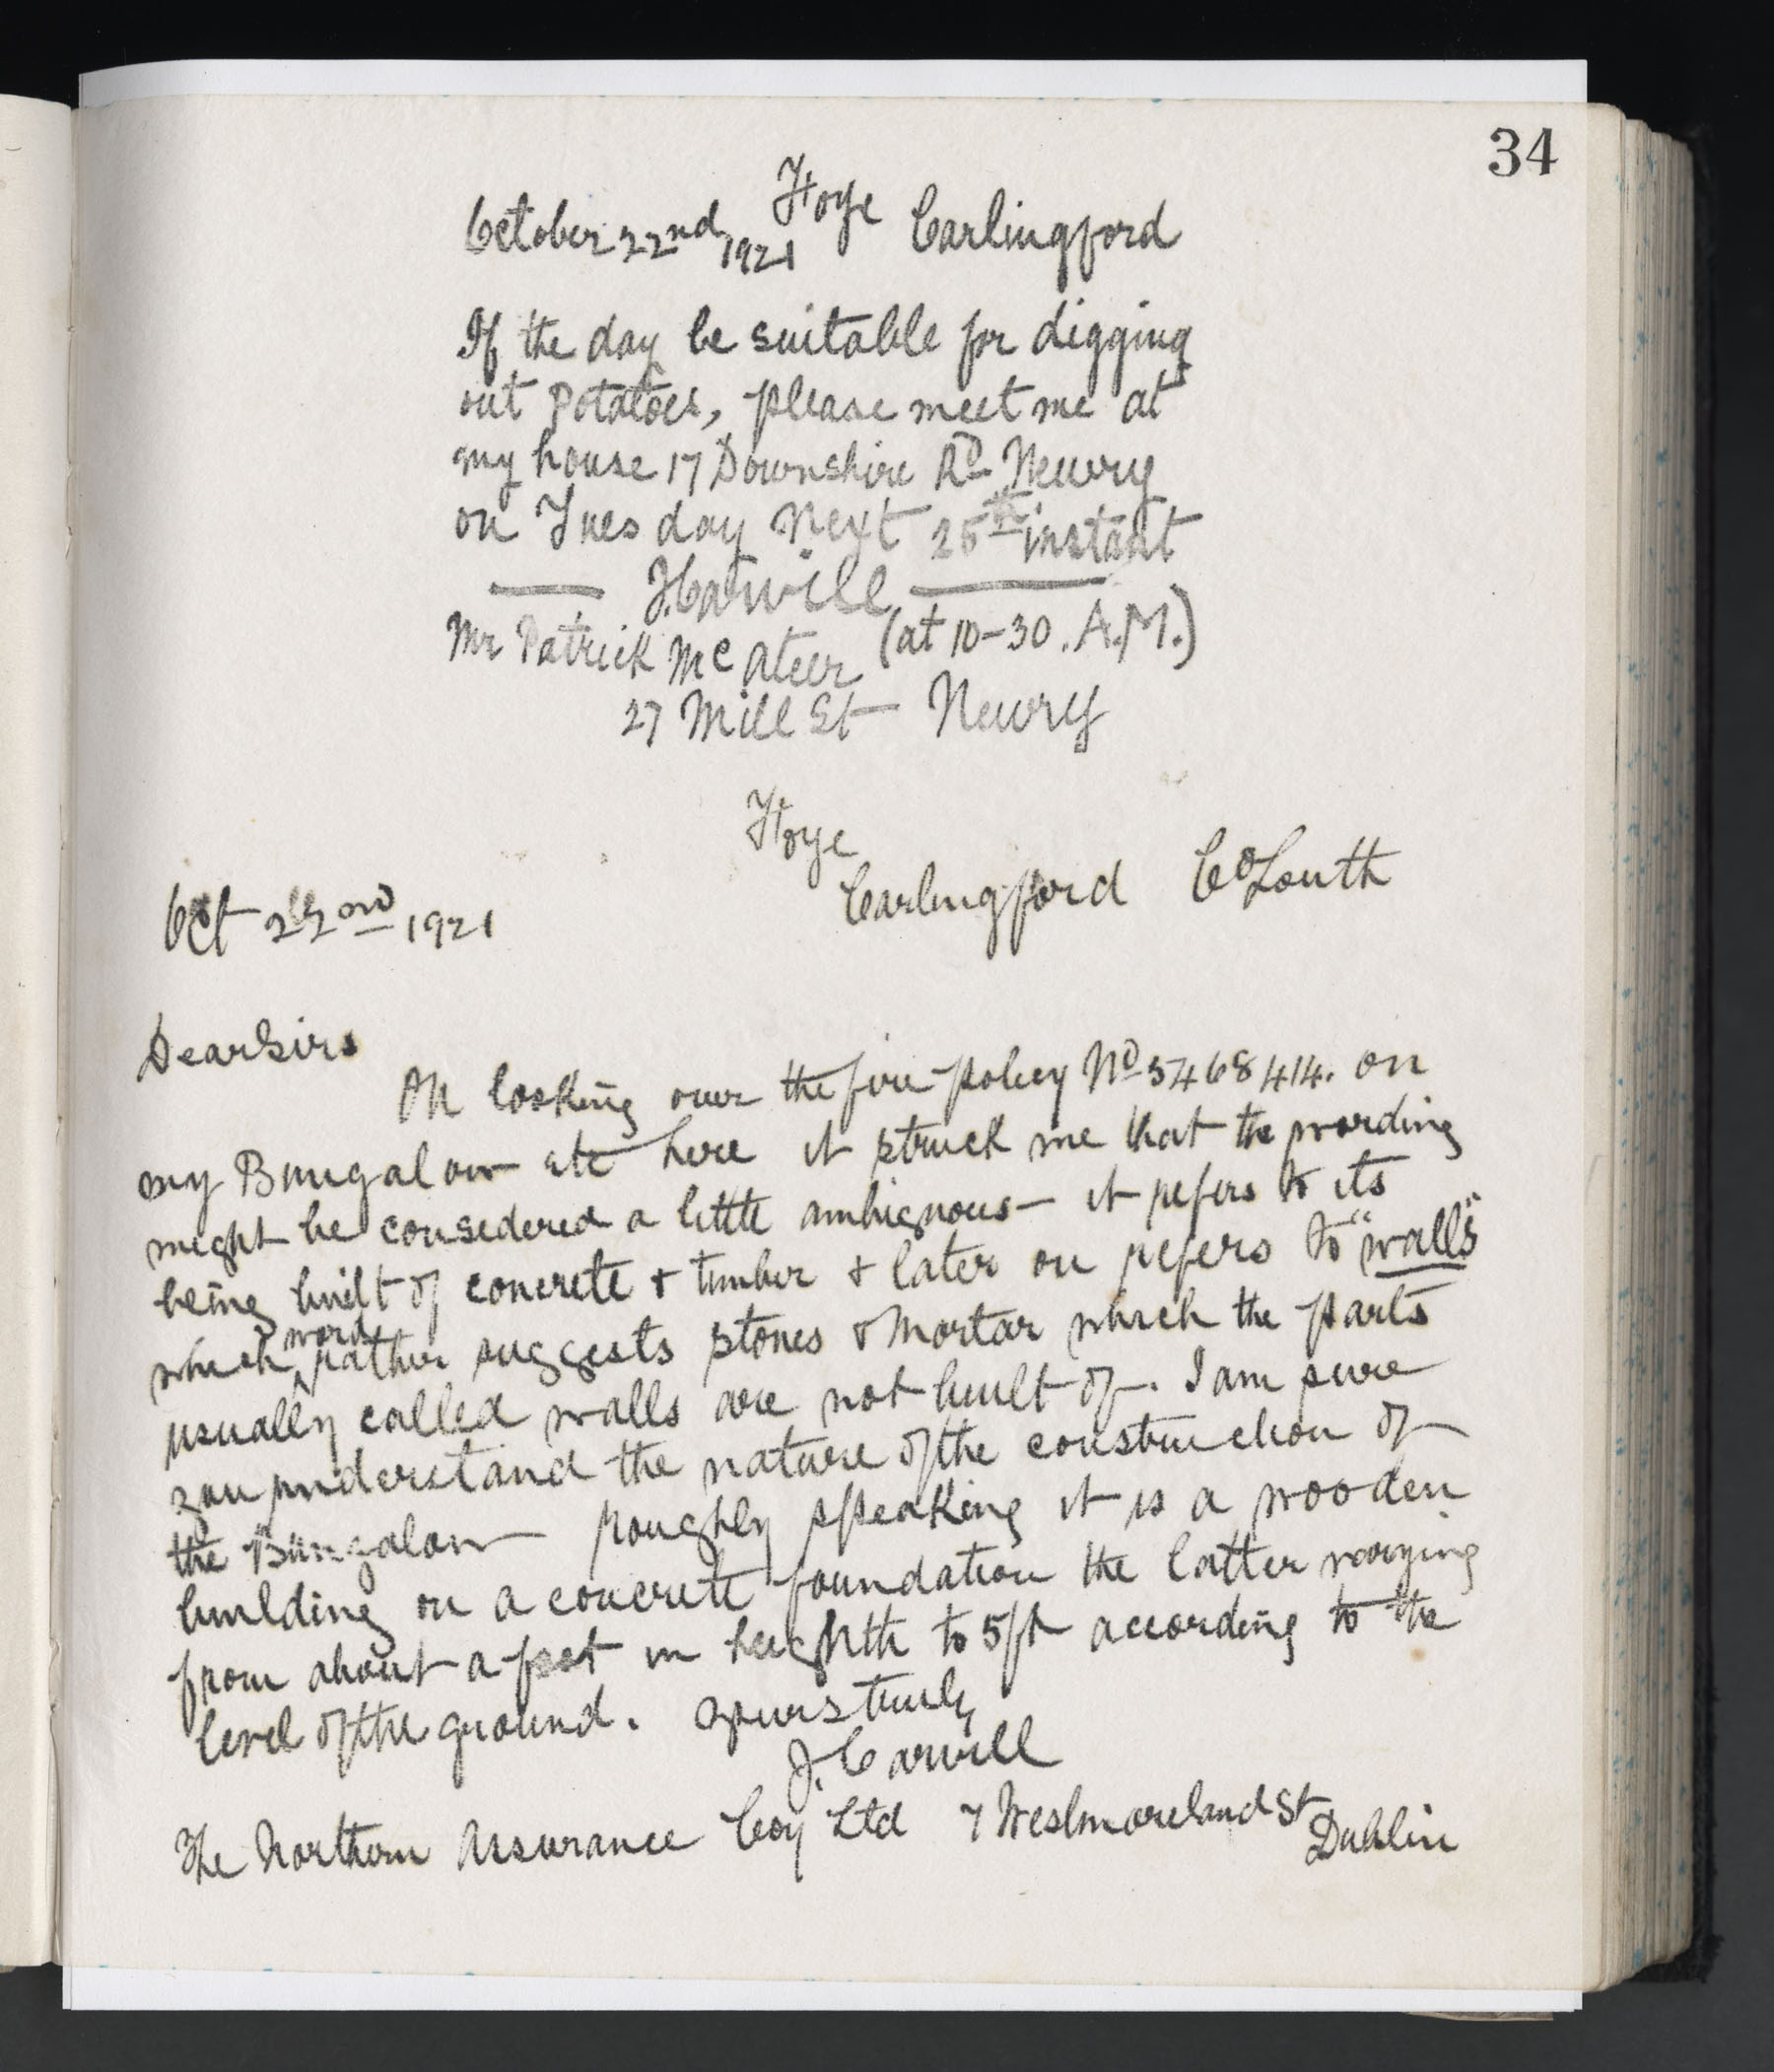 34
Ffoye
October 22nd 1921 Carlingford
If the day be suitable for digging
out potatoes, please meet me at
my house 17 Downshire Rd Newry
on Tuesday next 25th instant
J. Carvill
(at 10-30. A.M.)
Mr Patrick McAteer
27 Mill St Newry
Carlingford Co Louth
Oct 22nd 1921
Dear Sirs
On looking over the fire policy No 5468414. on
my Bungalow etc here it struck me that the wording
might be considered a little ambiguous - it refers to its
being built of concrete & timber & later on refers to "walls"
which word rather suggests stones & mortar which the parts
usually called walls are not built of. I am sure
you understand the nature of the construction of
the Bungalow roughly speaking it is a wooden
building on a concrete foundation the latter varying
from about a foot in heighth to 5ft according to the
level of the ground. Yours truly
J. Carvill
The Northern Assurance Coy Ltd 7 Westmoreland St
Dublin